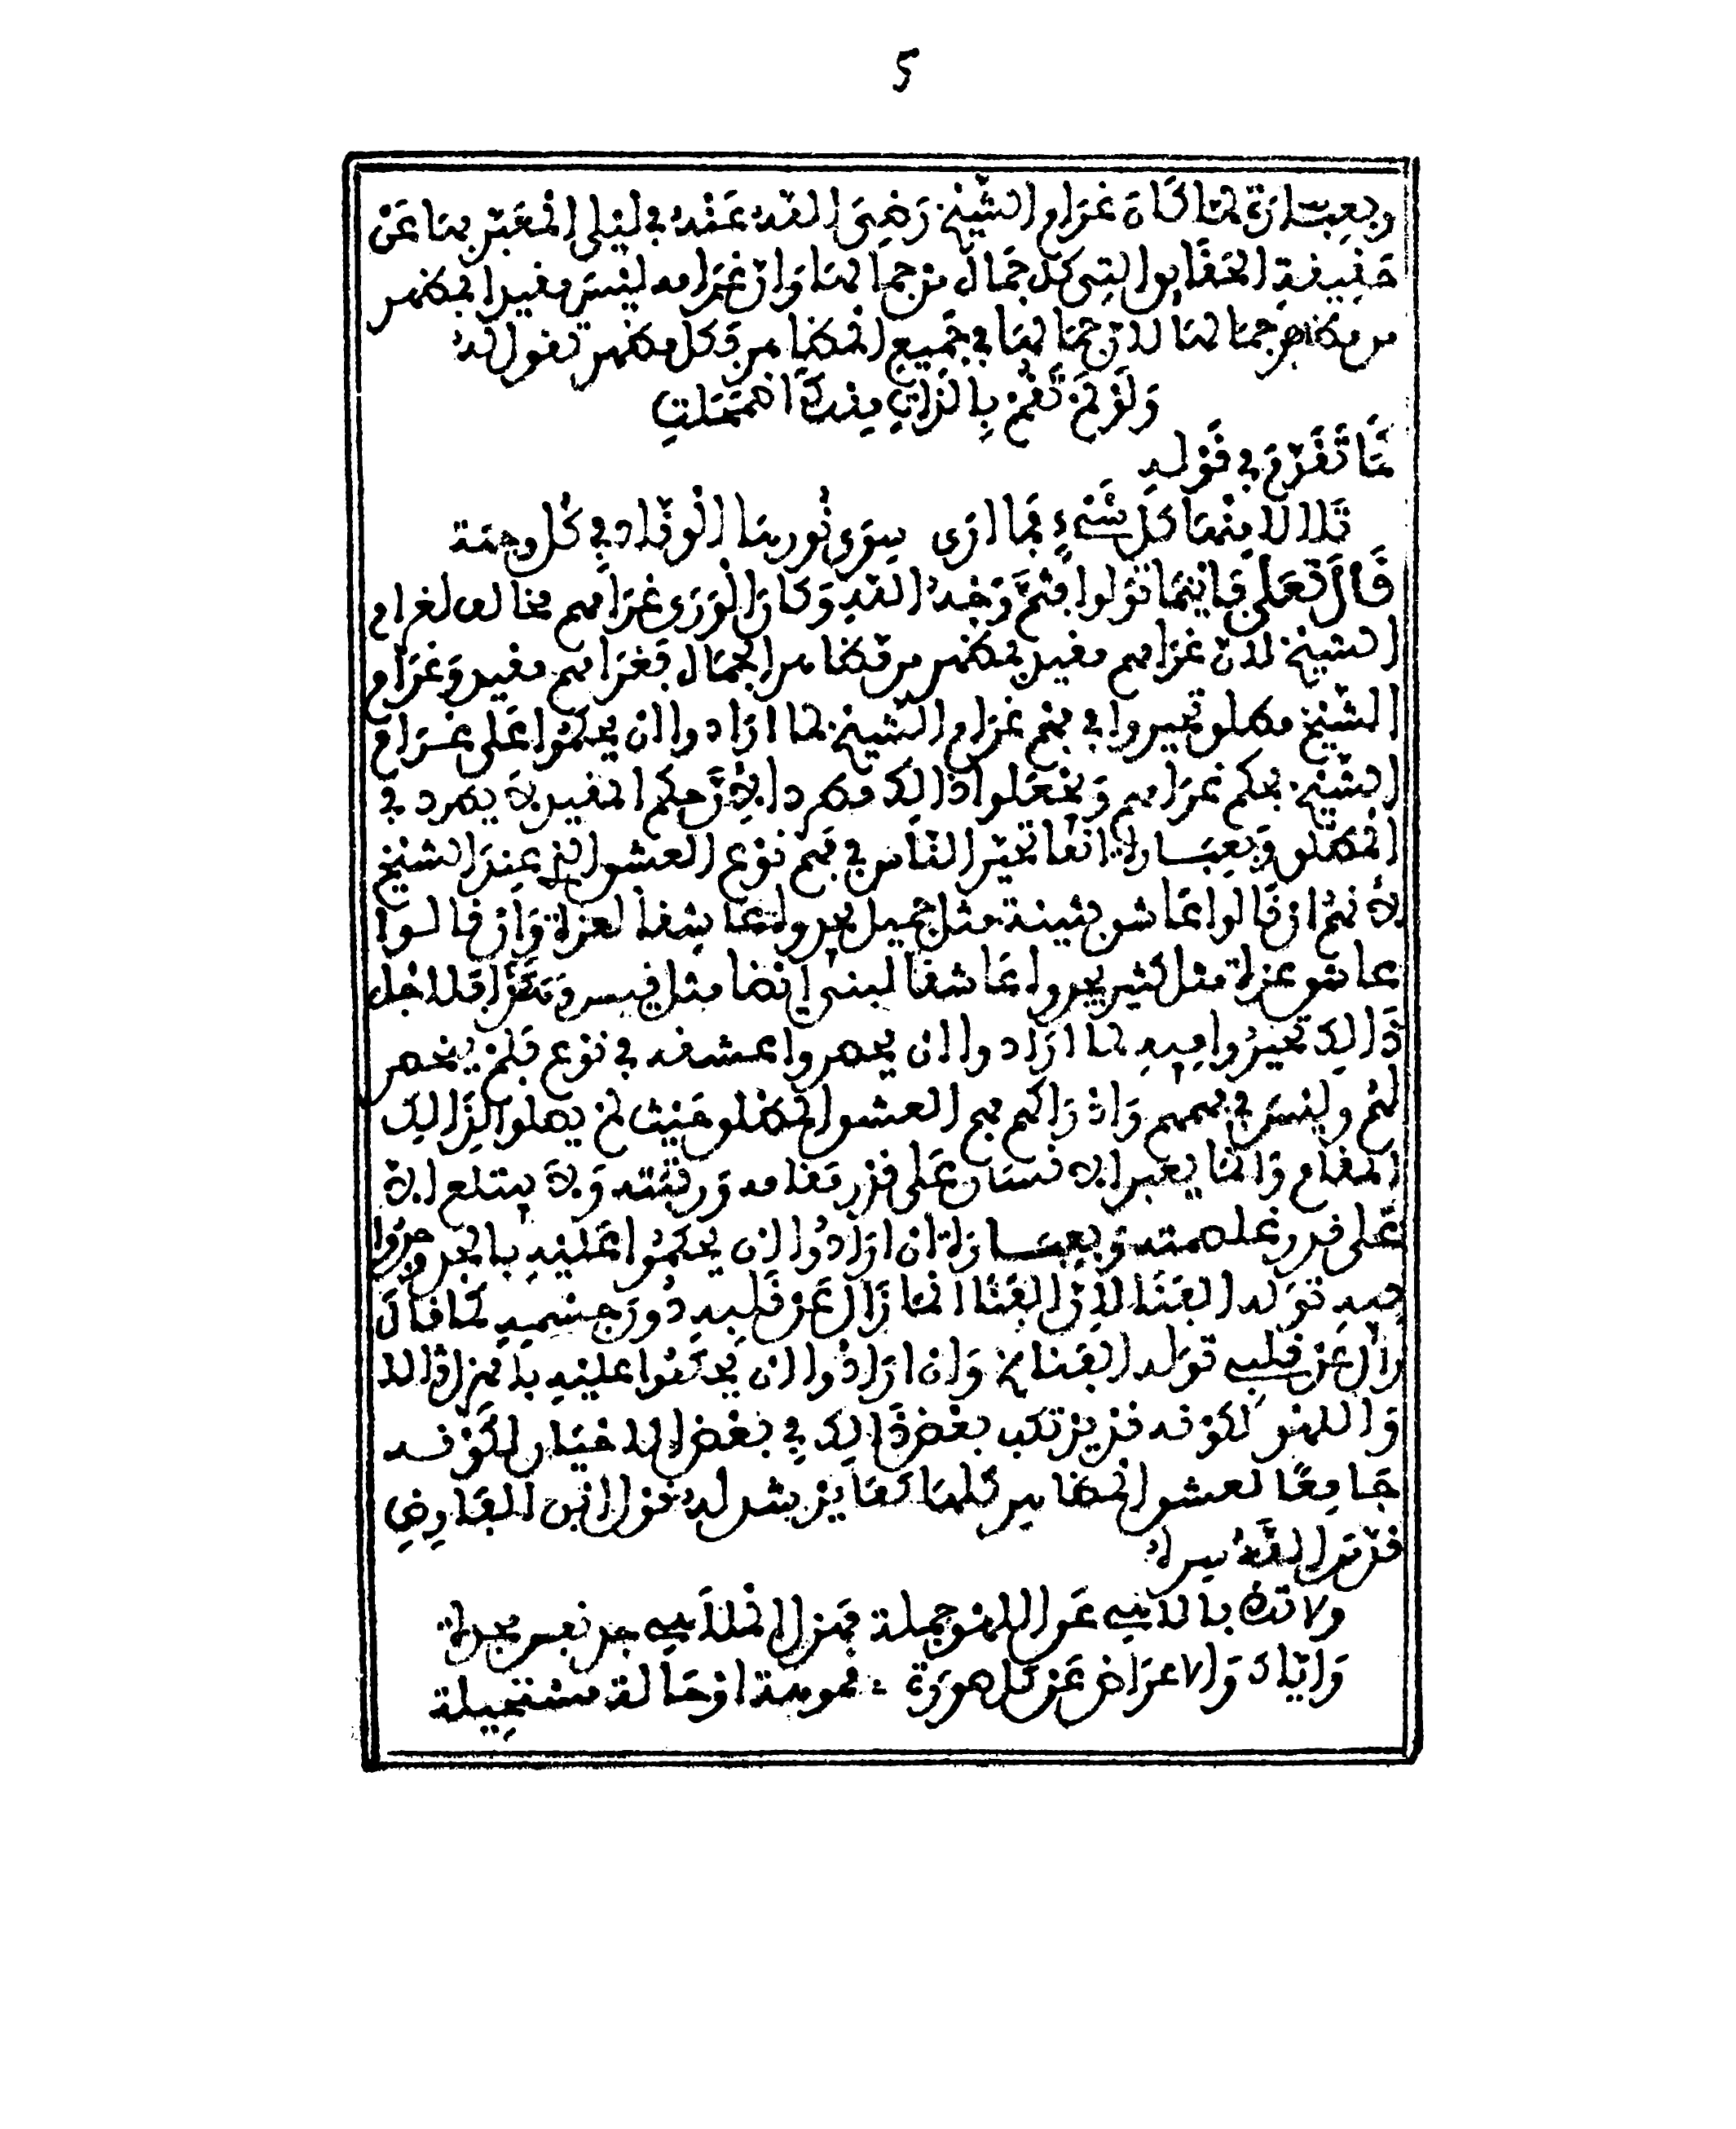 5
وبعبارة لما كان غرام الشيخ رضي الله عنه في ليلى المعبر بها عن
حقيقة الحقايق التي كل جمال من جمالها وان غرامه ليس مقيدا بمظهر
من مظاهر جمالها لان جمالها في جميع المظاهر فكل مظهر تقول له
ولو لم تقم بالذات منك اضمحلت
كما تقدم في قوله
تلالا منها كل شيء فما ارى سوى نورها الوقاد في كل وجهة
قال تعلى فاينما تولوا فثم وجه الله وكان الورى غرامهم مخالف لغرام
الشيخ لان غرامهم مقيد بمظهر من مظاهر الجمال فغرامهم مقيد وغرام
الشيخ مطلق تحيروا في فهم غرام الشيخ لما ارادوا ان يحكموا على غرام
الشيخ بحكم غرامهم ويجعلوا ذالك مطردا لان حكم المقيد لا يطرد في
المطلق وبعبارة انما تحير الناس في فهم نوع العشق الذي عند الشيخ
لانهم ان قالوا عاشق بثينة مثل جميل يجدوه عاشقا لعزة وان قالوا
عاشق عزة مثل كثير يجدوه عاشقا لبنى ايضا مثل قيس وهكذا فلاجل
ذالك تحيروا فيه لما ارادوا ان يحصروا عشقه في نوع فلم ينحصر
لهم وليس في فهمهم وادراكهم فهم العشق المطلق حيث لم يصلوا لذالك
المقام وانما يعبر الانسان على قدر مقامه ورتبته ولا يبتلع الا
على قدر غلصمته وبعبارة ان ارادوا ان يحكموا عليه بالجد وجدوا
فيه توله الفنا لان الفنا انما زال عن قلبه دون جسمه كما قال
زال عن قلبي توله الفنا وان ارادوا ان يحكموا عليه بالهزل والا
واللهو لكونه قد يرتكب بعض ذالك في بعض الاحيان لكونه
جامعا لعشق المظاهر كلها كما يرشد له قول ابن الفارض
قدس الله سره
ولا تك باللاهي عن اللهو جملة فهزل الملاهي جد نفس مجدة
واياك والاعراض عن كل صورة مموهة او حالة مستحيلة